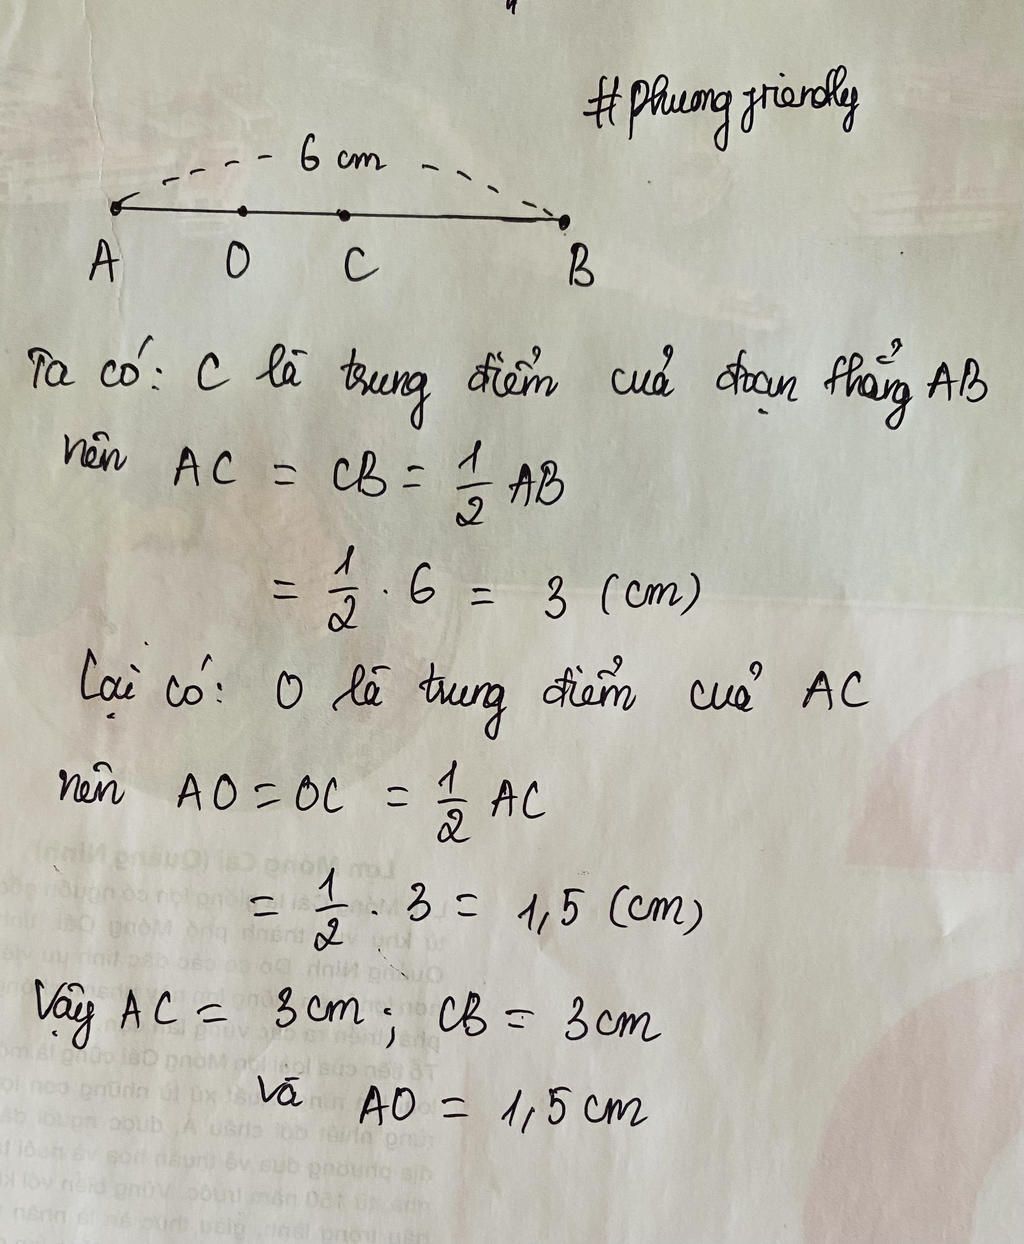 #Phuong friendly
6 cm
A O C B
Ta có: C là trung điểm của đoạn thẳng AB
nên AC = CB = 1/2 AB
= 1/2 . 6 = 3 (cm)
Lại có: O là trung điểm của AC
nên AO = OC = 1/2 AC
= 1/2 . 3 = 1,5 (cm)
Vậy AC = 3cm; CB = 3cm
và AO = 1,5 cm